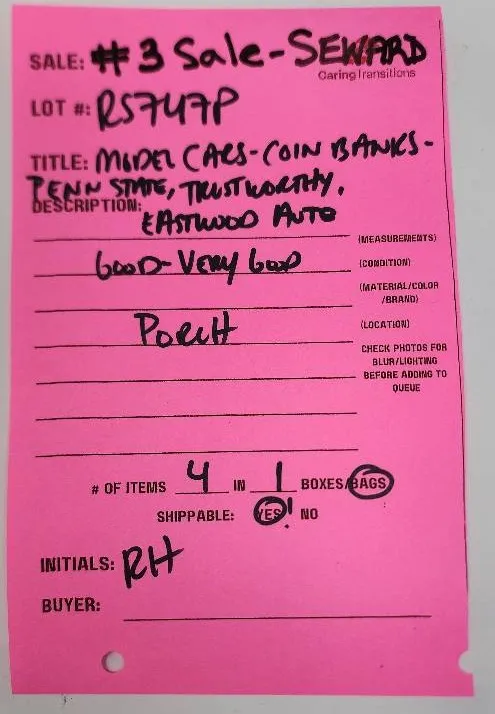 SALE: #3 Sale - SEWARD
CaringTransitions
LOT #: RS747P
TITLE: MODEL CARS - COIN BANKS -
PENN STATE, TRUSTWORTHY,
DESCRIPTION: EASTWOOD AUTO
(MEASUREMENTS)
GOOD - VERY GOOD (CONDITION)
(MATERIAL/COLOR
/BRAND)
PORCH (LOCATION)
CHECK PHOTOS FOR
BLUR/LIGHTING
BEFORE ADDING TO
QUEUE
# OF ITEMS 4 IN 1 BOXES/BAGS
SHIPPABLE: YES! NO
INITIALS: RH
BUYER: